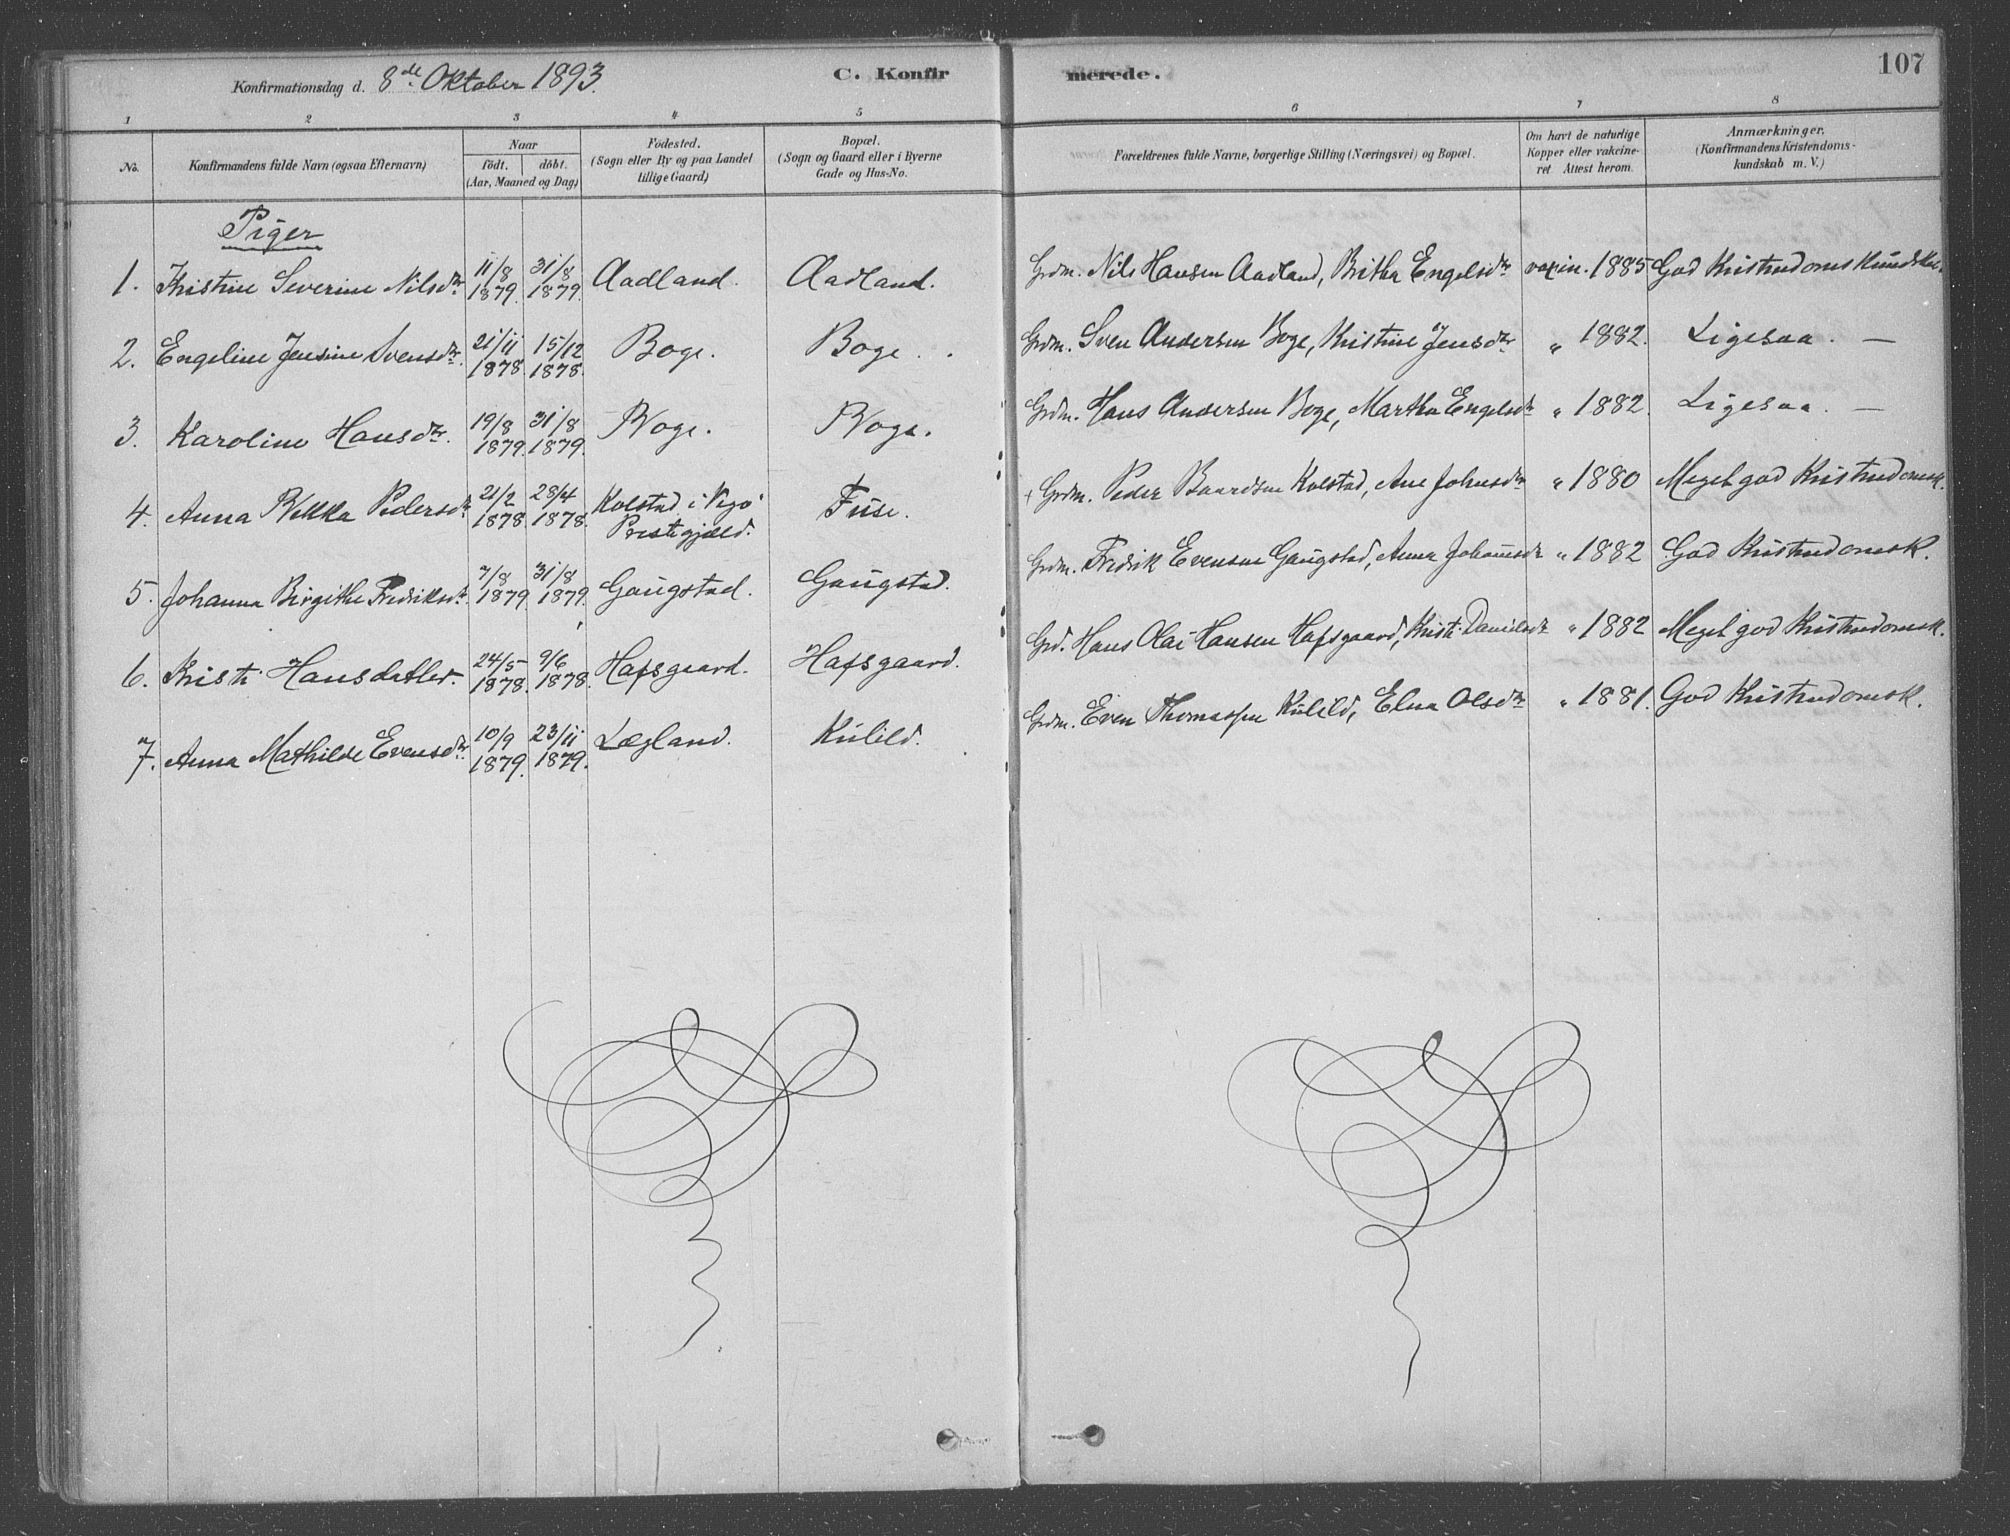 Konfirmationsdag d. 8de Oktober 1893. C. Konfir merede. 107
1 2 3 4 5 6 7 8
No. Konfirmandens fulde Navn (ogsaa Efternavn) Naar födt. döbt. (Aar, Maaned og Dag) Födested. (Sogn eller By og paa Landet tillige Gaard) Bopæl. (Sogn og Gaard eller i Byerne Gade og Hus-No. Forældrenes fulde Navne, borgerlige Stilling (Næringsvei) og Bopæl. Om havt de naturlige Kopper eller vakcineret Attest herom. Anmærkninger. (Konfirmandens Kristendomskundskab m. V.)
Piger
1. Kristine Severine Nilsdtr 11/8 1879. 31/8 1879. Aadland. Aadland. Grdm. Nils Hansen Aadland, Britha Engelsdtr vaxin. 1885 God Kristendomskundskab
2. Engeline Jensine Svensdtr. 21/11 1878. 15/12 1878. Boge. Boge. Grdm. Sven Andersen Boge, Kristine Jensdtr " 1882. Ligesaa. —
3. Karoline Hansdtr. 19/8 1879. 31/8 1879. Boge. Boge. Grdm. Hans Andersen Boge, Martha Engelsdtr " 1882. Ligesaa. —
4. Anna Rekka Pedersdtr 21/2 1878. 28/4 1878. Kolstad i Prestegjæld. Fuse. Grdm. Peder Baardsen Kolstad, Ane Johnsdtr " 1880 Meget god Kristendomsk.
5. Johanna Birgithe Fredriksdtr. 7/8 1879 31/8 1879. Gaugstad. Gaugstad. Grdm. Fredrik Evensen Gaugstad, Anna Johannesdtr " 1882 God Kristendomsk.
6. Kristi Hansdatter. 24/5 1878. 9/6 1878. Hafsgaard. Hafsgaard. Grd. Hans Olai Hansen Hafsgaard, Kristi Danielsdtr " 1882 Meget god Kristendomsk.
7. Anna Mathilde Evensdtr. 10/9 1879. 23/11 1879. Lægland. Kulild. Grdm. Even Thomassen Kulild, Elna Olsdtr " 1881. God Kristendomsk.